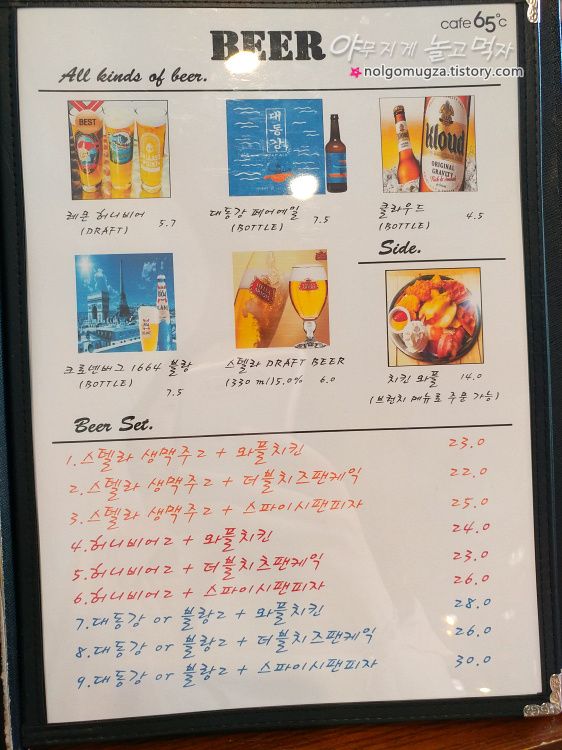 cafe 65℃
BEER
야무지게 놀고먹자
nolgomugza.tistory.com
All kinds of beer.
BEST
대동강
kloud
ORIGINAL
GRAVITY
레몬 허니비어 5.7
(DRAFT)
대동강 페어에일 7.5
(BOTTLE)
클라우드
(BOTTLE) 4.5
Side.
크로넨버그 1664 블랑
(BOTTLE) 7.5
스텔라 DRAFT BEER
(330 ml)5.0% 6.0
치킨 와플 14.0
(브런치 메뉴로 주문 가능)
Beer Set.
1.스텔라 생맥주2 + 와플치킨 23.0
2.스텔라 생맥주2 + 더블치즈팬케익 22.0
3.스텔라 생맥주2 + 스파이시팬피자 25.0
4.허니비어2 + 와플치킨 24.0
5.허니비어2 + 더블치즈팬케익 23.0
6.허니비어2 + 스파이시팬피자 26.0
7.대동강 or 블랑2 + 와플치킨 28.0
8.대동강 or 블랑2 + 더블치즈팬케익 26.0
9.대동강 or 블랑2 + 스파이시팬피자 30.0